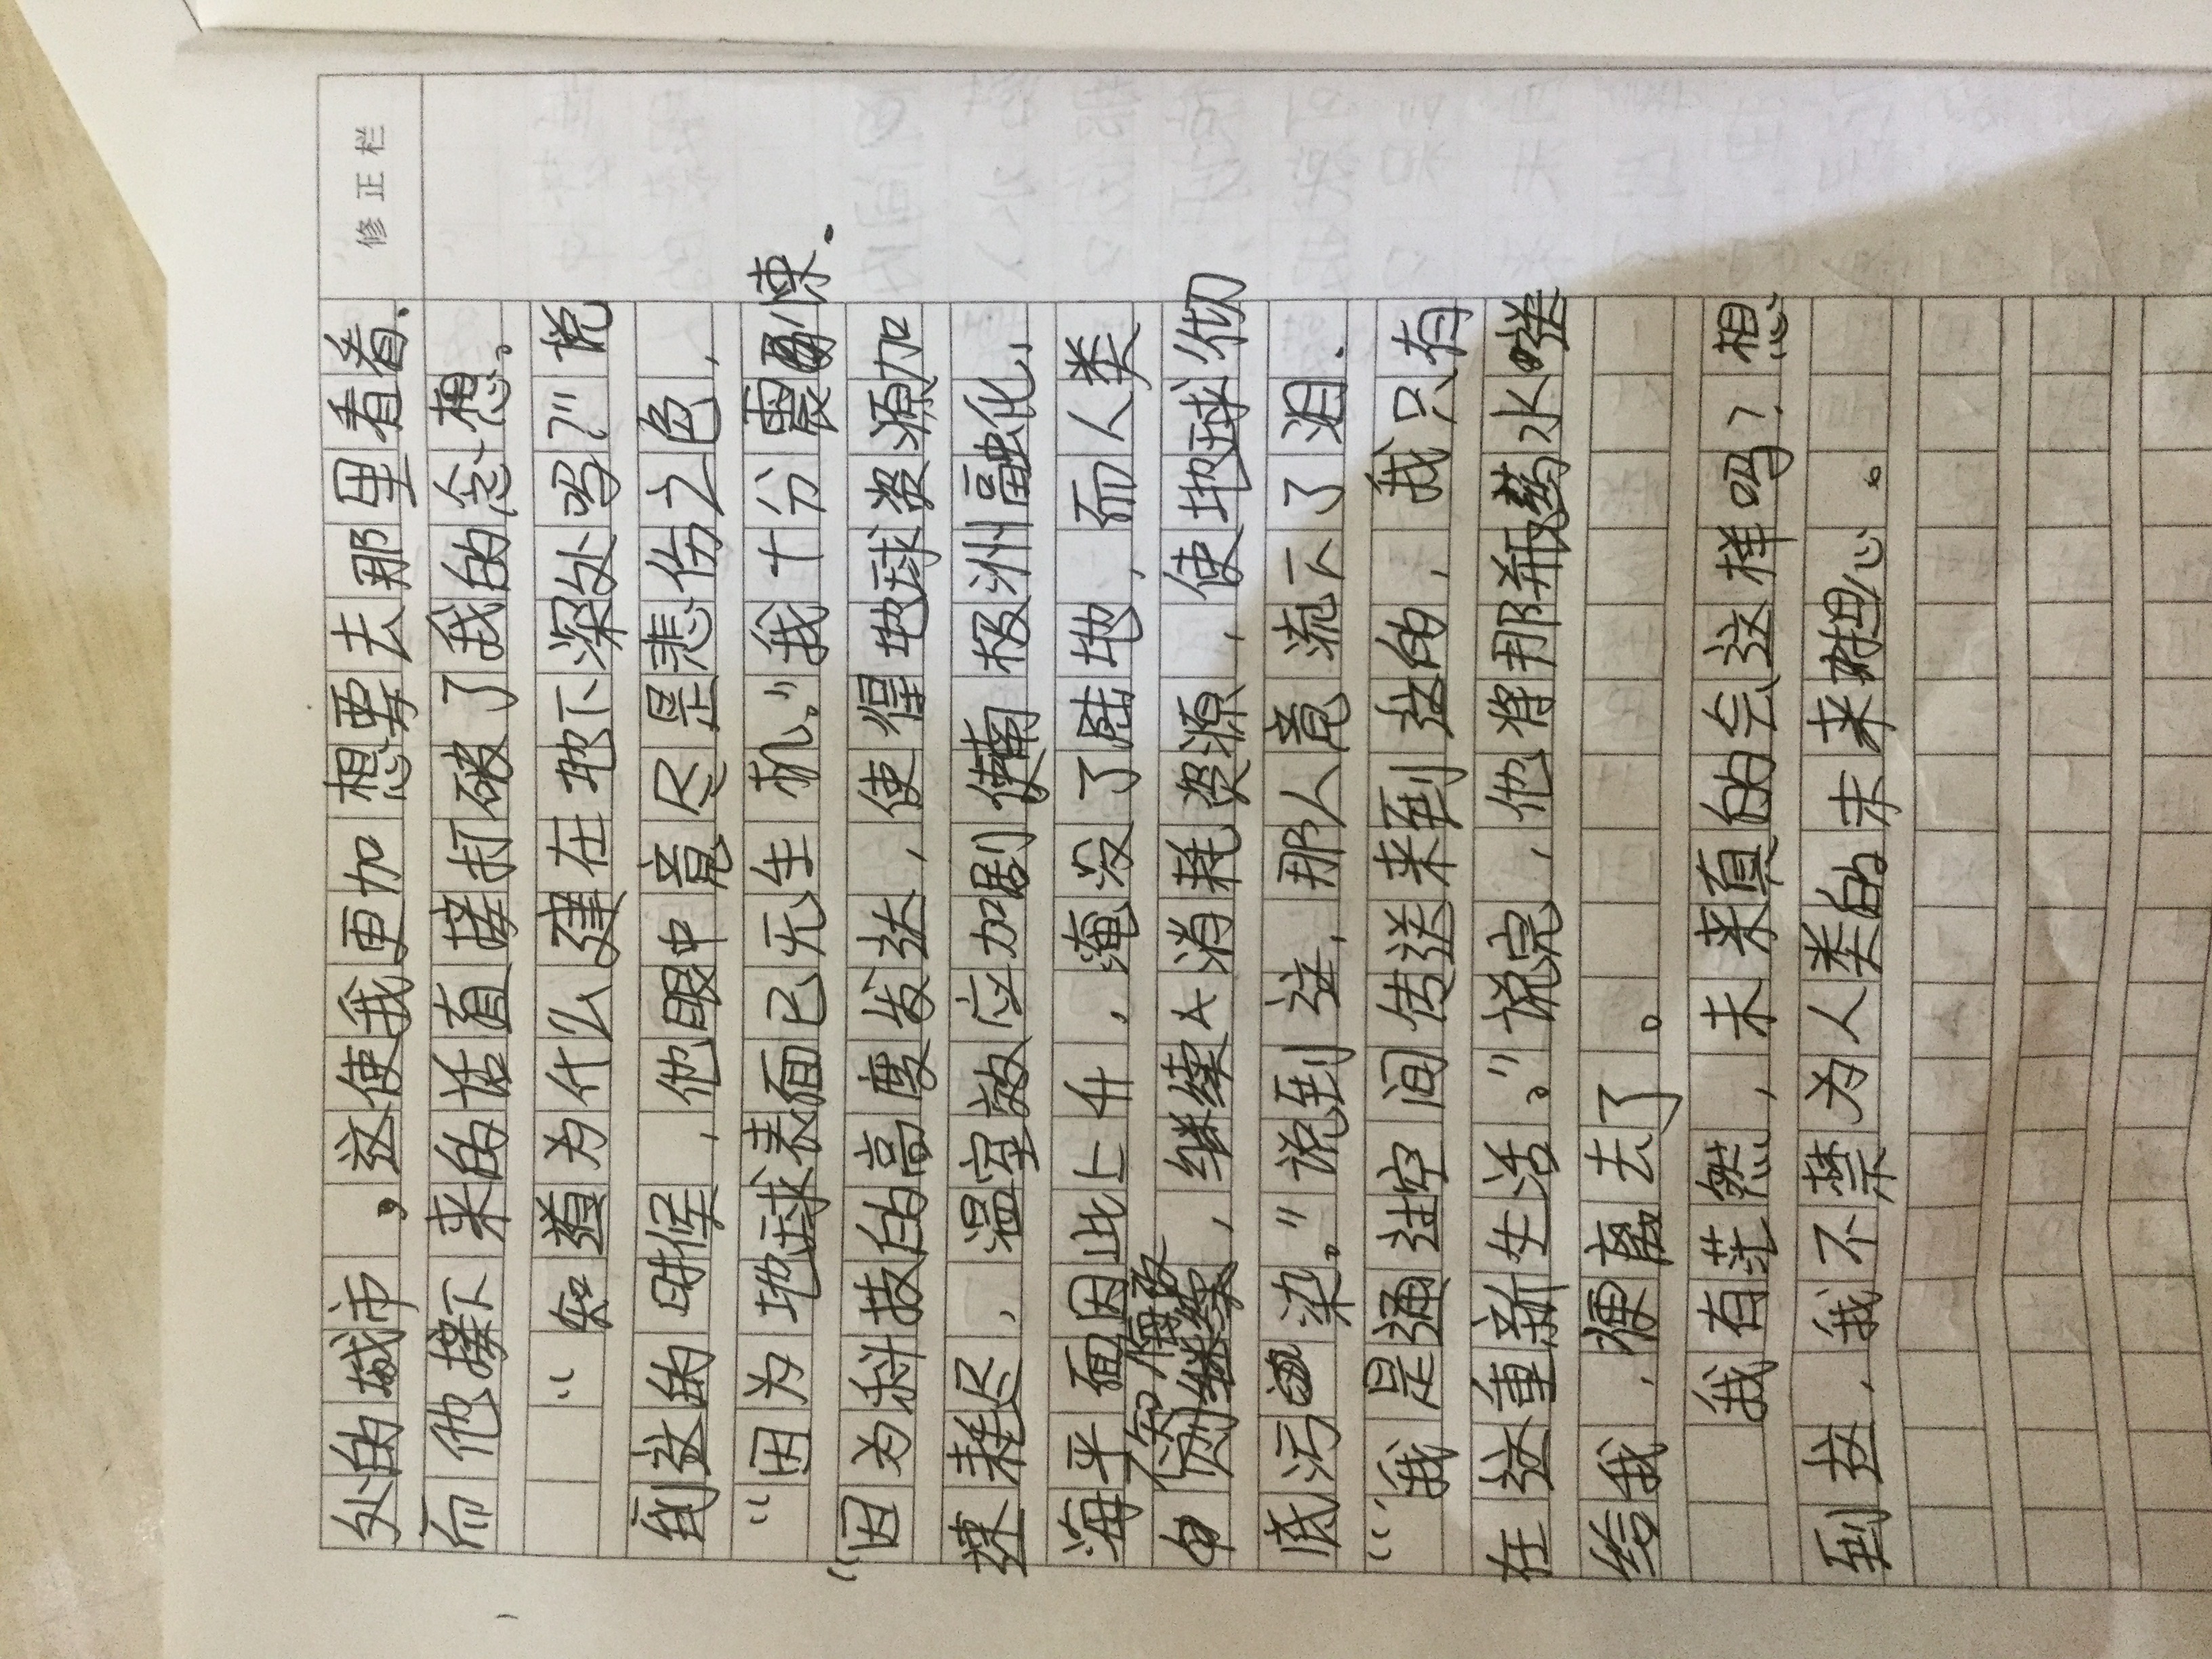 修正栏
处的城市，这使我更加想要去那里看看.
而他接下来的话直接打破了我的念想。
“知道为什么建在地下深处吗?”说
到这的时候，他眼中竟尽是悲伤之色，
“因为地球表面已无生机。”我十分震悚.
“因为科技的高度发达，使得地球资源加
速耗尽，温室效应加剧使南极洲融化、
海平面因此上升，淹没了陆地，而人类
却不知悔改，继续大消耗资源，使地球彻
底污染。”说到这，那人竟流下了泪.
“我是通过空间传送来到这的，我只有
在这重新生活。”说完，他将那瓶药水送
给我，便离去了。
我有茫然，未来真的会这样吗?想
到这，我不禁为人类的未来担心。